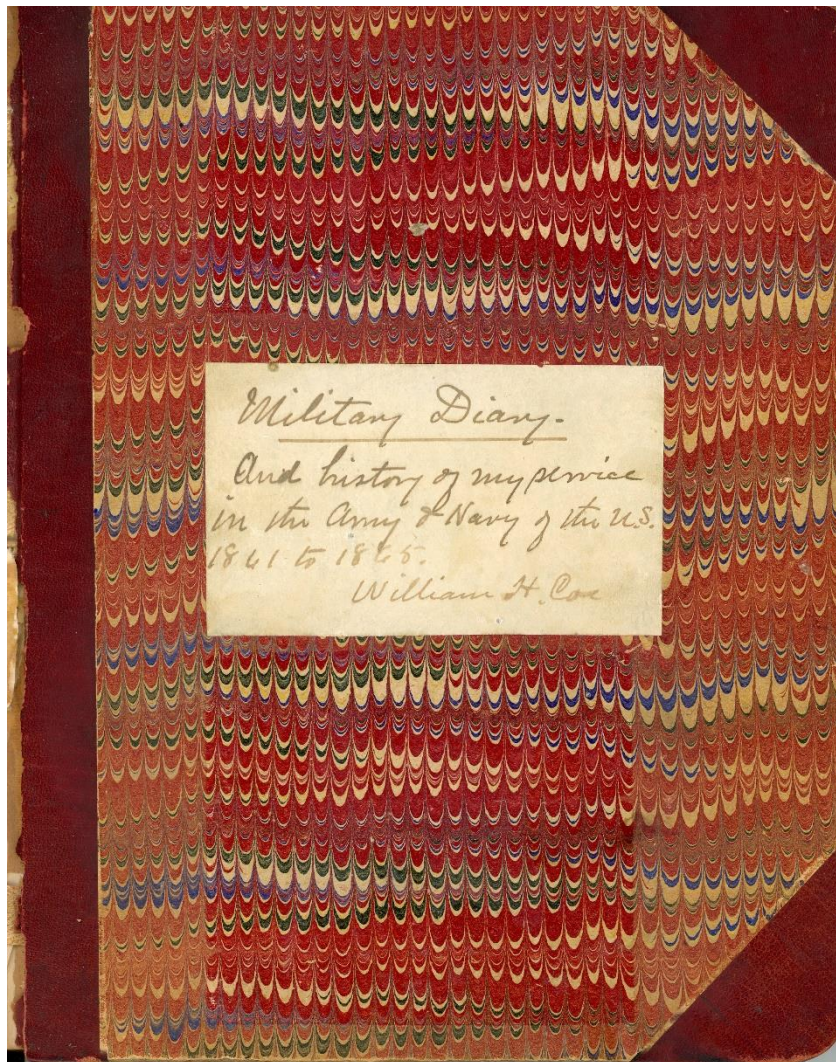 Military Diary.
And history of my service
in the Army & Navy of the U.S.
1861 to 1865.
William H. Cox